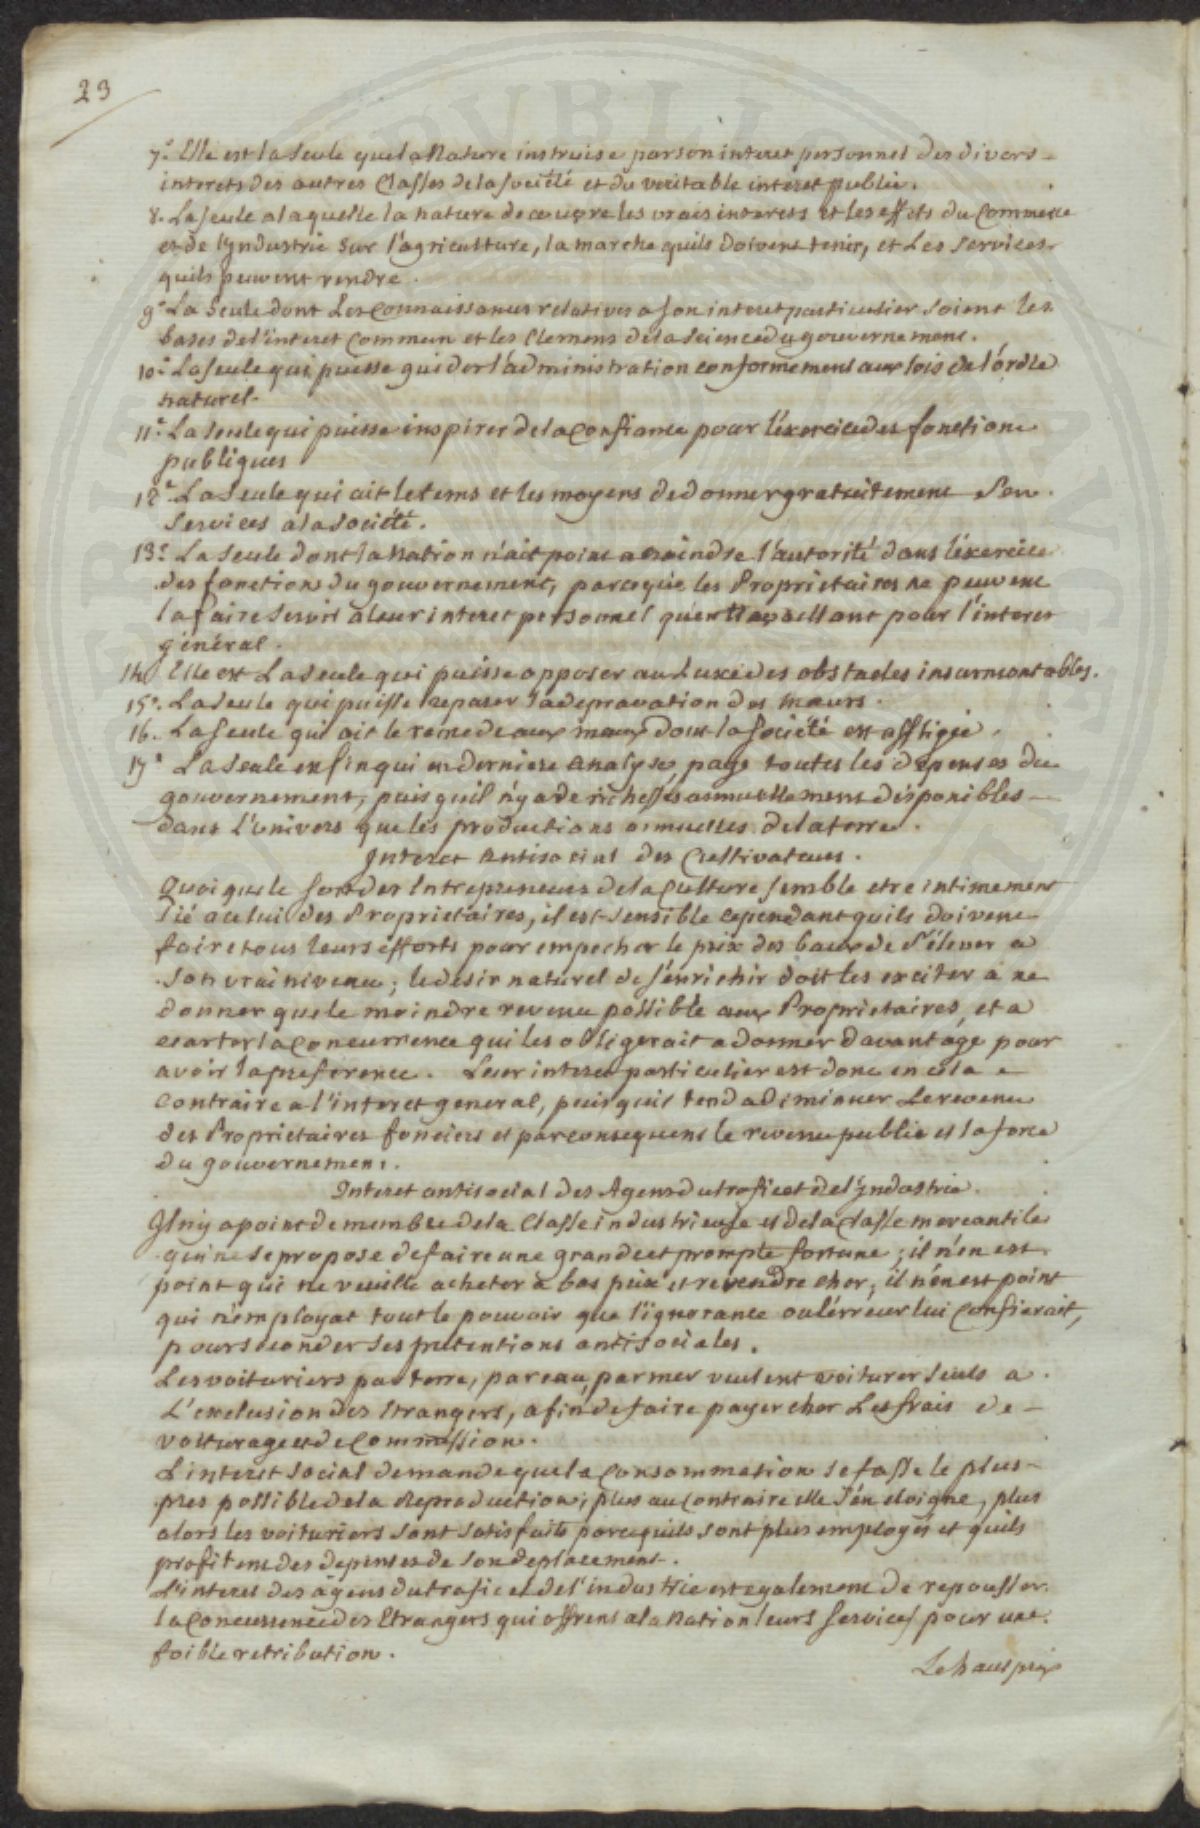 23
7.e Elle est la seule que la Nature instruise par son interet personnel des divers
interets des autres Classes de la société et du veritable interet public.
8. La seule a laquelle la nature decouvre les vrais interets et les effets du Commerce
et de l'yndustrie sur l'agriculture, la marche quils doivent tenir, et Les services
quils peuvent rendre.
9e La seule dont Les Connaissances relatives a son interet particulier soient les
bases de l'interet Commun et les Elemens de la science du gouvernement.
10e La seule qui puisse guider l'administration conformement aux lois de l'ordre
naturel.
11e La seule qui puisse inspirer de la Confiance pour l'exercice des fonctions
publiques
12e La seule qui ait le tems et les moyens de donner gratuitement ses
services a la société.
13e La seule dont la Nation n'ait point a craindre l'autorité dans l'exercice
des fonctions du gouvernement, parceque les Proprietaires ne peuvent
la faire servir a leur interet personnel qu'en travaillant pour l'interet
général.
14. Elle est La seule qui puisse opposer au Luxe des obstacles insurmontables.
15e. La seule qui puisse reparer la depravation des mœurs.
16. La seule qui ait le remede aux maux dont la société est affligée.
17e La seule enfin qui en derniere analyse paye toutes les dépenses du
gouvernement, puis quil n'y a de richesses annuellement disponibles
dans l'Univers que les productions annuelles de la terre.
Interet Antisocial des Cultivateurs.
Quoi que le sort des Entrepreneurs de la Culture semble etre intimement
lié a celui des Proprietaires, il est sensible cependant quils doivent
faire tous leurs efforts pour empecher le prix des baux de s'élever a
son vrai niveau; le desir naturel de s'enrichir doit les exciter a ne
donner que le moindre revenu possible aux Proprietaires, et a
ecarter la Concurrence qui les obligerait a donner davantage pour
avoir la preference. Leur interet particulier est donc en cela
Contraire a l'interet general, puis quil tend a diminuer Le revenu
des Proprietaires fonciers et par consequent le revenu public et la force
du gouvernement.
Interet antisocial des Agens du trafic et de l'yndustrie.
Il n'y a point de membre de la Classe industrieuse et de la Classe mercantile
qui ne se propose de faire une grande et prompte fortune; il n'en est
point qui ne veuille acheter a bas prix et revendre cher, il n'en est point
qui n'employat tout le pouvoir que l'ignorance ou l'erreur lui Confierait,
pour seconder ses pretentions antisociales.
Les voituriers par terre, par eau, par mer veulent voiturer seuls a
L'exclusion des Etrangers, afin de faire payer cher Les frais de
voiturage et de Commission.
L'interet social demande que la Consommation se fasse le plus
pres possible de la Reproduction; plus au Contraire elle s'en eloigne, plus
alors les voituriers sont satisfaits parcequils sont plus employés et quils
profitent des depenses de son deplacement.
L'interet des agens du trafic et de l'industrie est egalement de repousser
la Concurrence des Etrangers qui offrent a la Nation leurs services pour une
foible retribution.
Le haut prix